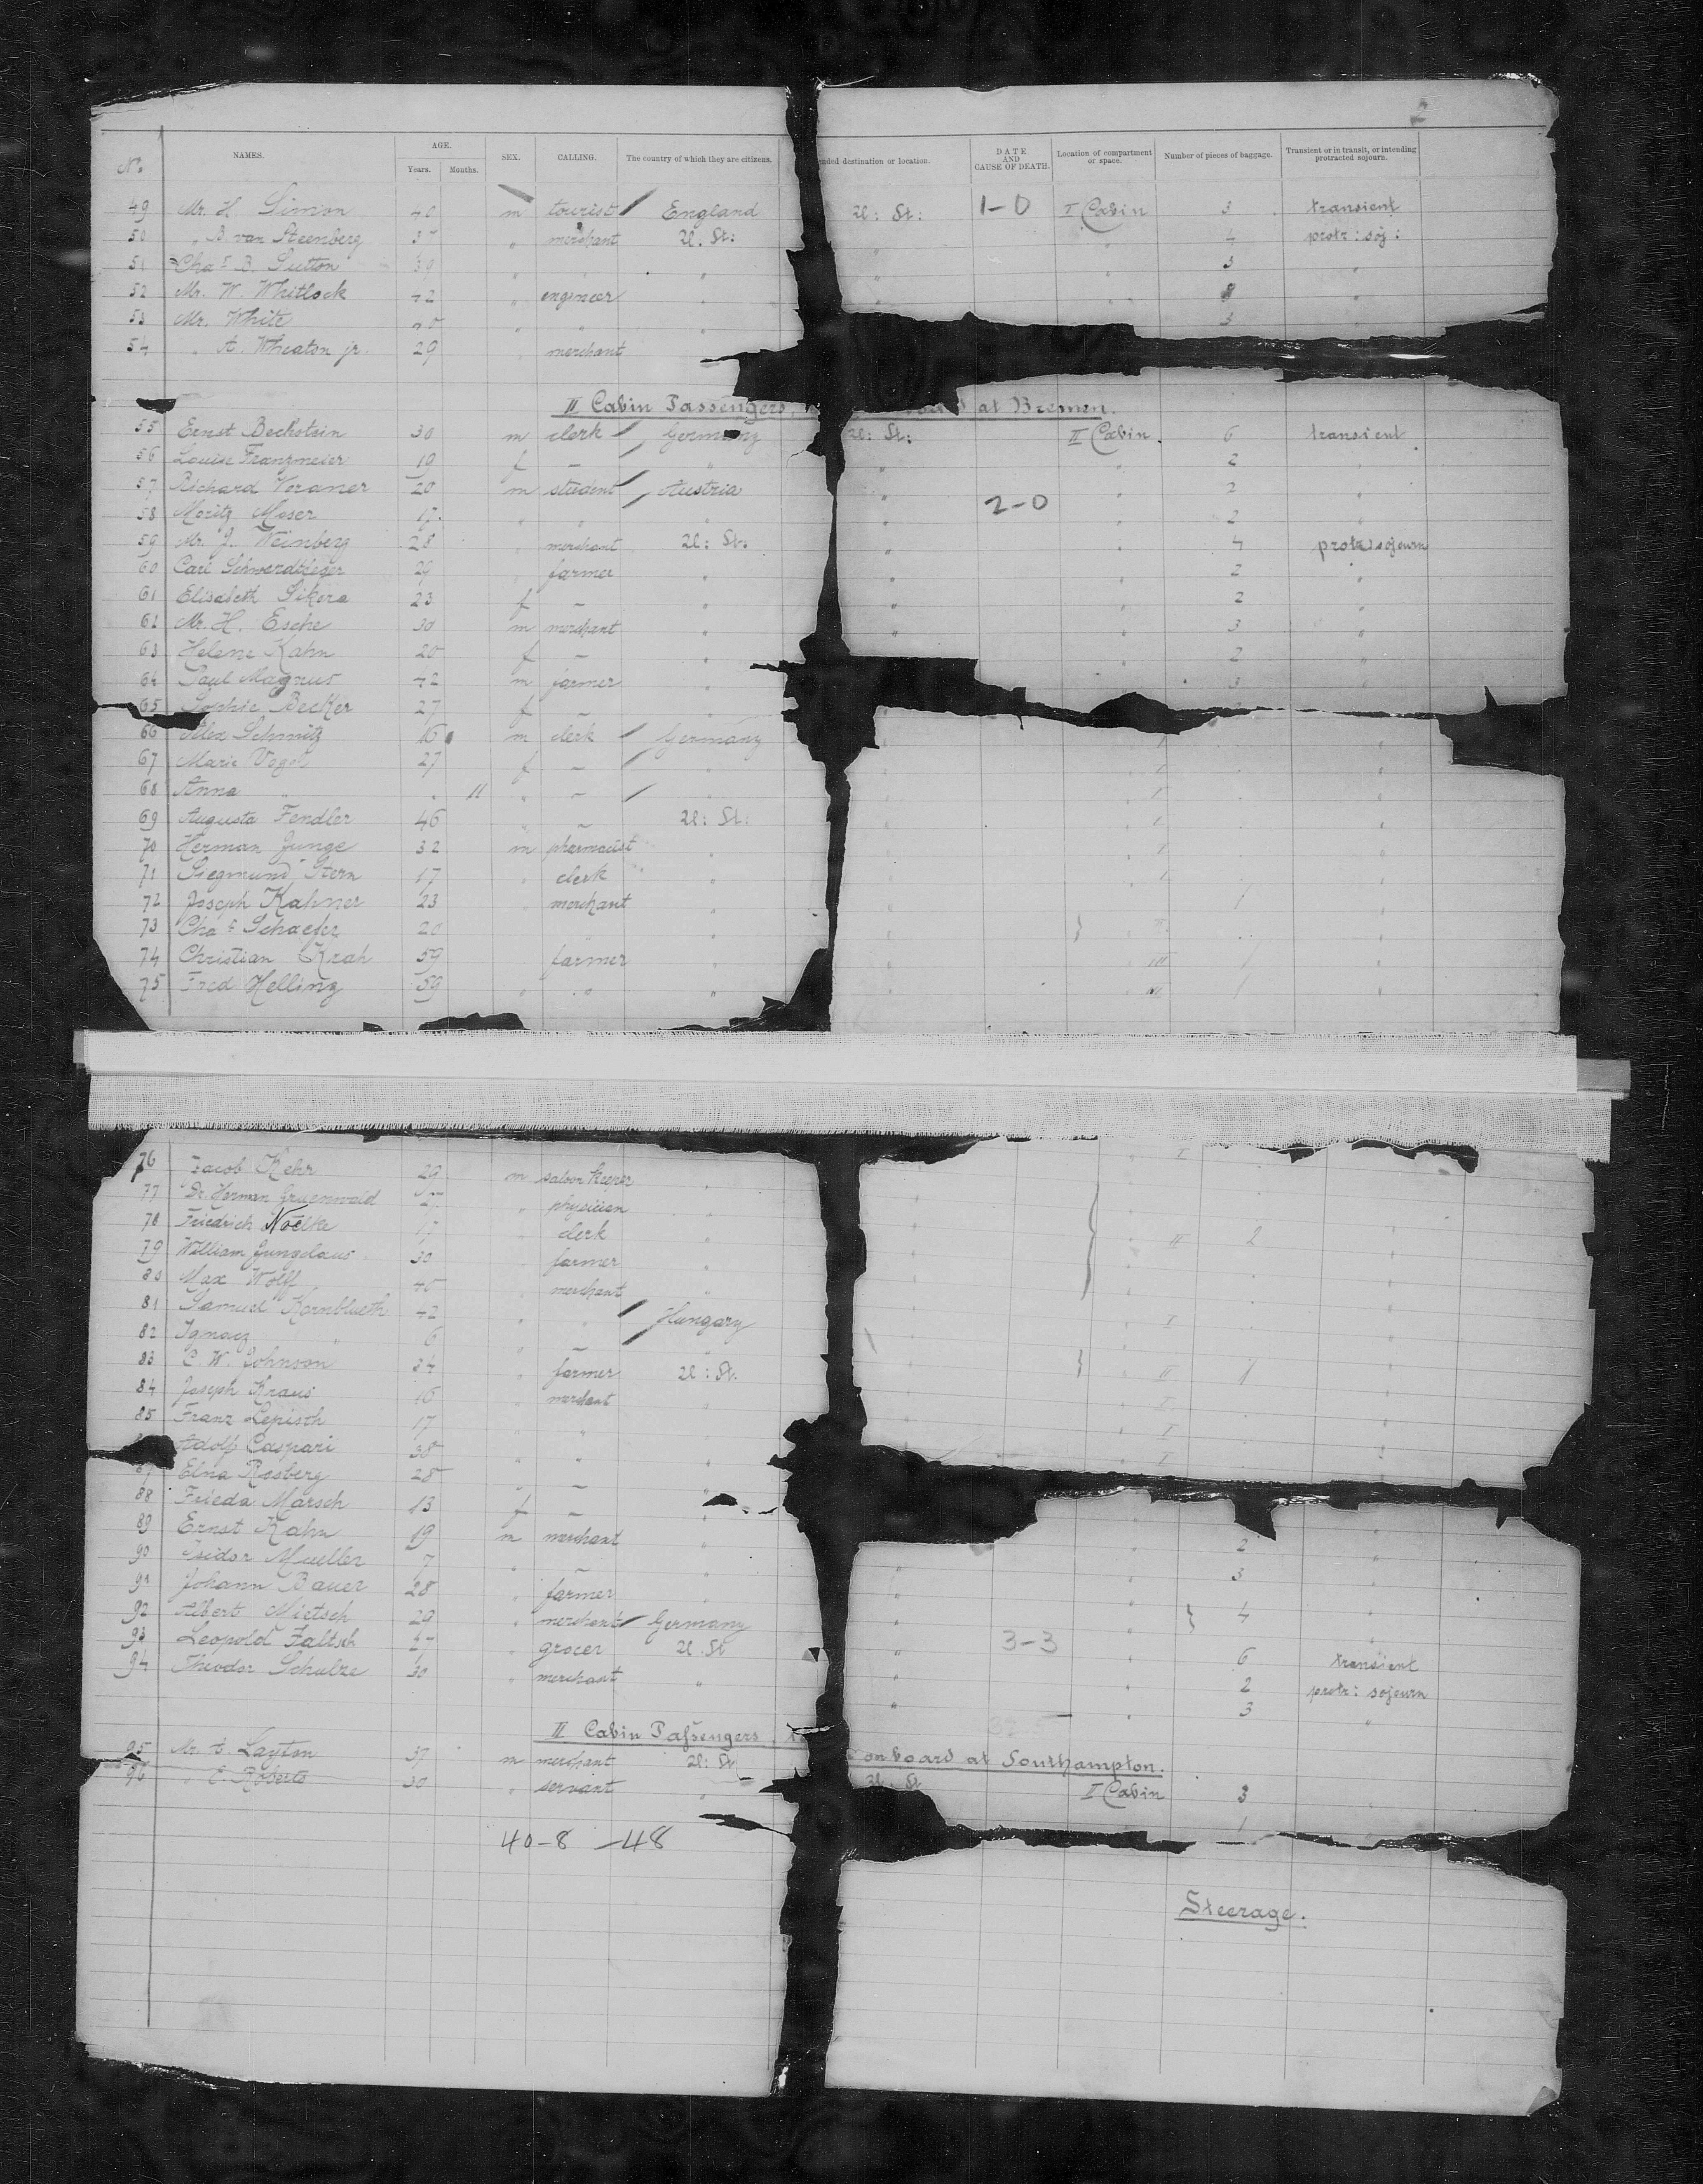 2
No. NAMES. AGE. Years. Months. SEX. CALLING. The country of which they are citizens. nded destination or location. DATE AND CAUSE OF DEATH. Location of compartment or space. Number of pieces of baggage. Transient or in transit, or intending protracted sojourn.
49 Mr. H. Simon 40 m tourist England U: St: 1-0 I Cabin 3 transient
50 " B. van Steenberg " merchant U. St: " " 4 protr: soj:
51 Chas B. Sutton 39 " " " " " 3 "
52 Mr. W. Whitlock 42 " engineer " " " "
53 Mr. White " " " 3
54 " A. Wheaton jr. 29 " merchant
II Cabin Passengers at Bremen.
55 Ernst Beckstein 30 m clerk Germany U: St: II Cabin. 6 transient
56 Louise Franzmeier 19 f — " " " 2 "
57 Richard Voraner 20 m student Austria " " 2 "
58 Moritz Moser 17 " " " " 2-0 " 2 "
59 Mr. J. Weinberg 28 " merchant U: St: " " 4 protr: sojourn
60 Carl 29 " farmer " " " 2 "
61 Elisabeth Sikora 23 f — " " " 2 "
62 Mr. H. Esche 30 m merchant " " " 3 "
63 Helene Kahn 20 f — " " 2 "
64 Paul Magnus 42 m farmer " " 3 "
65 Sophie Becker 27 f — "
66 Alex Schmitz 16 m clerk Germany
67 Marie Vogel 27 f — "
68 Anna " " 11 " — "
69 Augusta Fendler 46 " — U: St:
70 Herman Junge 32 m pharmacist "
71 Siegmund Stern 17 " clerk "
72 Joseph Kahner 23 " merchant "
73 Chas Schaefer 20 " "
74 Christian Krah 59 farmer " " III
75 Fred Helling 59 " " " " III
76 Jacob Kehr 29 m saloon keeper " I
77 Dr. Herman Gruenwald " physician "
78 Friedrich Noelke 17 " clerk II 2
79 William Jungclaus 30 " farmer
80 Max Wolff " merchant "
81 Samuel Kornblueth 42 " " Hungary I
82 Ignacz " 6 " —
83 C. W. Johnson 24 " farmer U: St. II 1
84 Joseph Kraus 16 " merchant I
85 Franz Lepisch 17 " " I
Adolf Caspari 38 " " " I
87 Elna Rosberg 28 " — "
88 Frieda Marsch 13 f — "
89 Ernst Kahn 19 m merchant " 2 "
90 Isidor Mueller 7 " — " 3
91 Johann Bauer 28 " farmer "
92 Albert Mietsch 29 " merchant Germany 4
93 Leopold Faltsch " grocer U. St 3-3 6 transient
94 Theodor Schulze 30 " merchant " 2 protr: sojourn
3 "
II Cabin Passengers, onboard at Southampton.
95 Mr. A. Layton 37 m merchant U: St U. St II Cabin 3
96 " E. Roberts 30 " servant " 1
40-8 -48
Steerage.